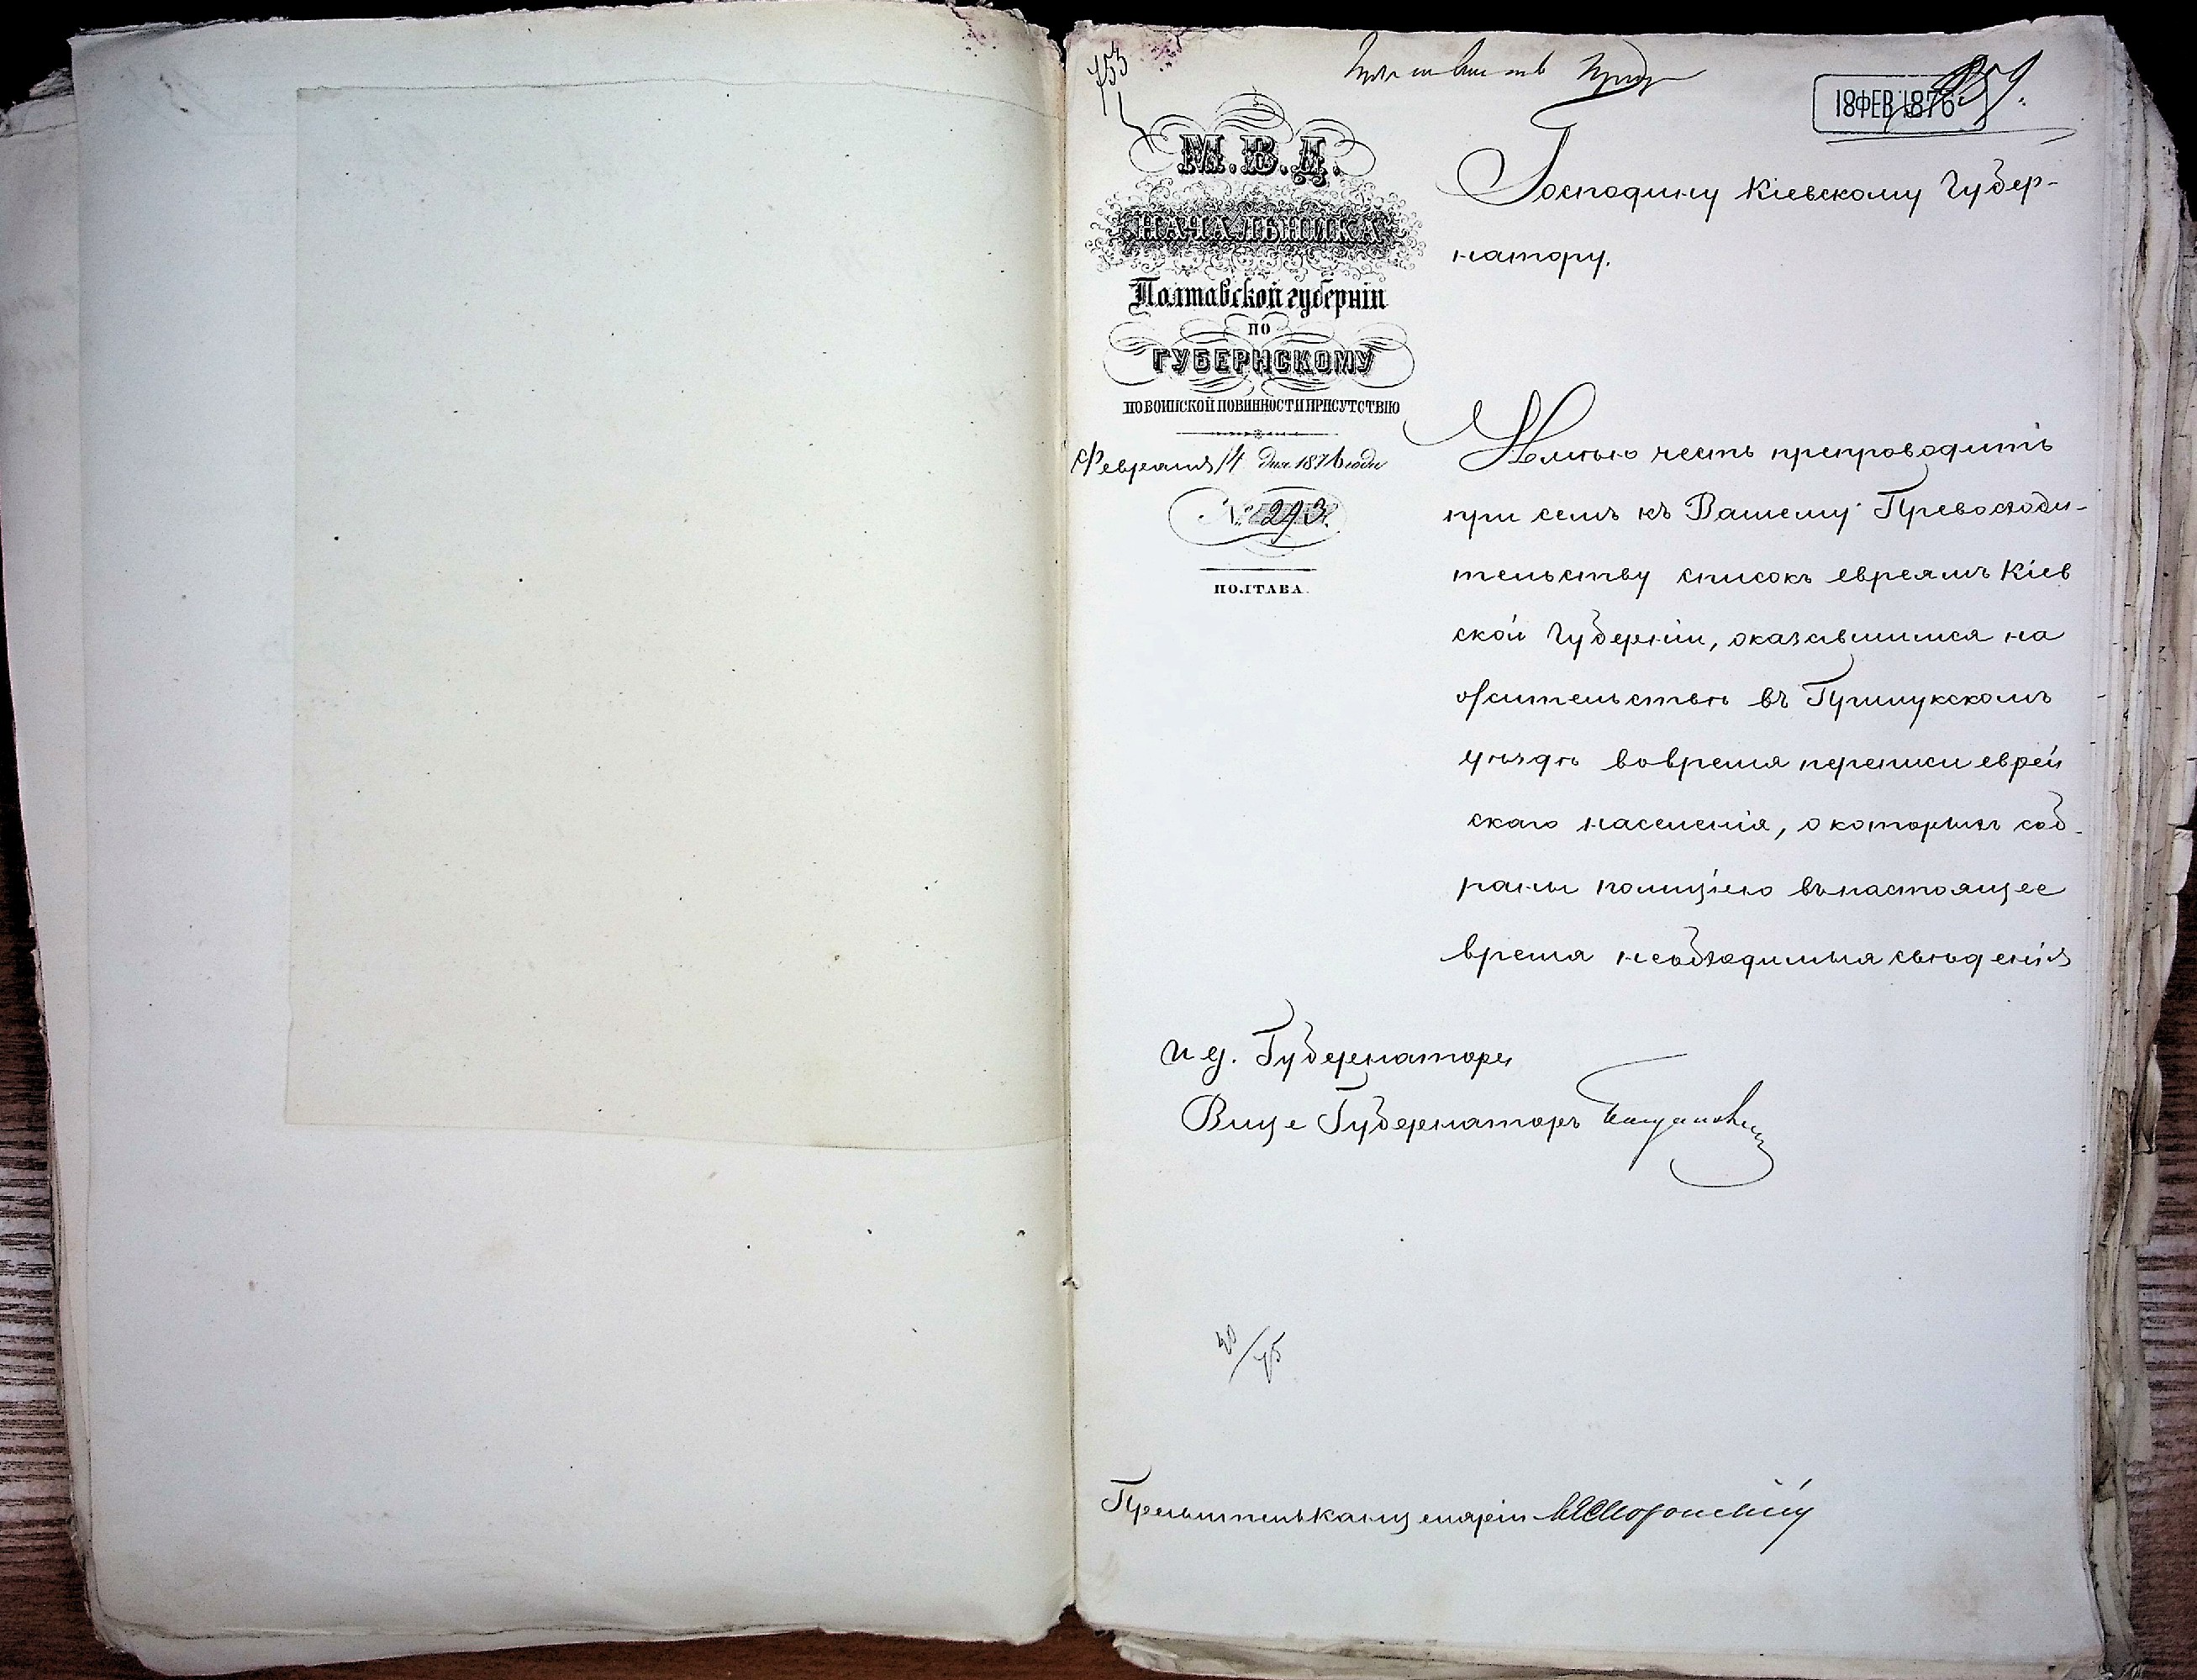 753
18 ФЕВ 1876
М.В.Д.
НАЧАЛЬНИКА
Полтавской губерніи
по
ГУБЕРНСКОМУ
ПО ВОИНСКОЙ ПОВИННОСТИ ПРИСУТСТВІЮ
Февраля 14 дня 1876 года
№ 293.
ПОЛТАВА.
Господину Кіевскому Губер-
натору.
Имѣю честь препроводить
при семъ къ Вашему Превосходи-
тельству списокъ евреямъ Кіев
ской Губерніи, оказавшимся на
жительствѣ въ Прилукскомъ
уѣздѣ во время переписи еврей
скаго населенія, о которыхъ соб-
раны полиціею въ настоящее
время необходимыя свѣденія
И д. Губернатора
Вице Губернаторъ
Правитель канцеляріи